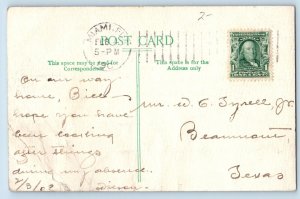 2-
MIAMI, FLA
FEB
5-PM
POST CARD
This space may be used for
Correspondence
This space is for the
Address only
On our way
home, Bill
hope you have
been looking
after things
during my absence.
2/3/09
Mr. W. C. Tyrell, Jr.
Beaumont
Texas